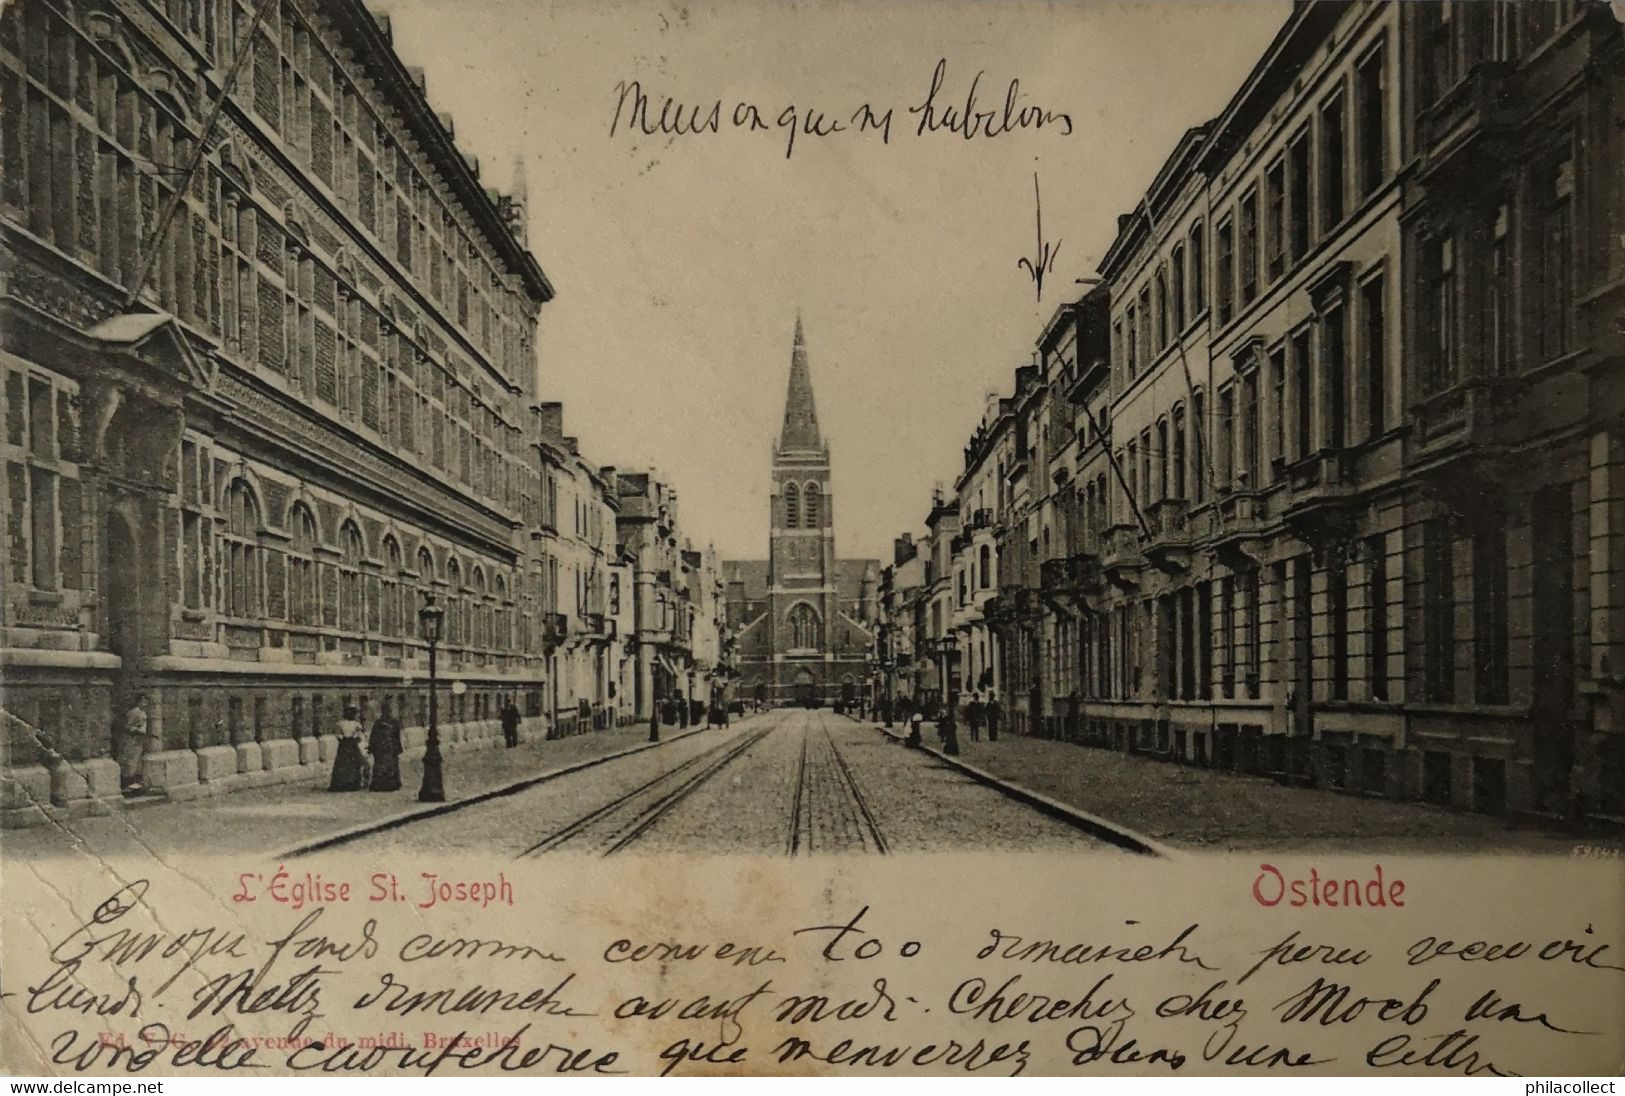 Maison que ns habitons
59848
L'Église St. Joseph
Ostende
Envoyez fonds comme convenu too dimanche pour recevoir
lundi. Mettez dimanche avant midi. Cherchez chez Moeb une
Ed. V. G. 12 avenue du midi, Bruxelles
rondelle caoutchouc que m'enverrez dans une lettre
delcampe.net
philacollect